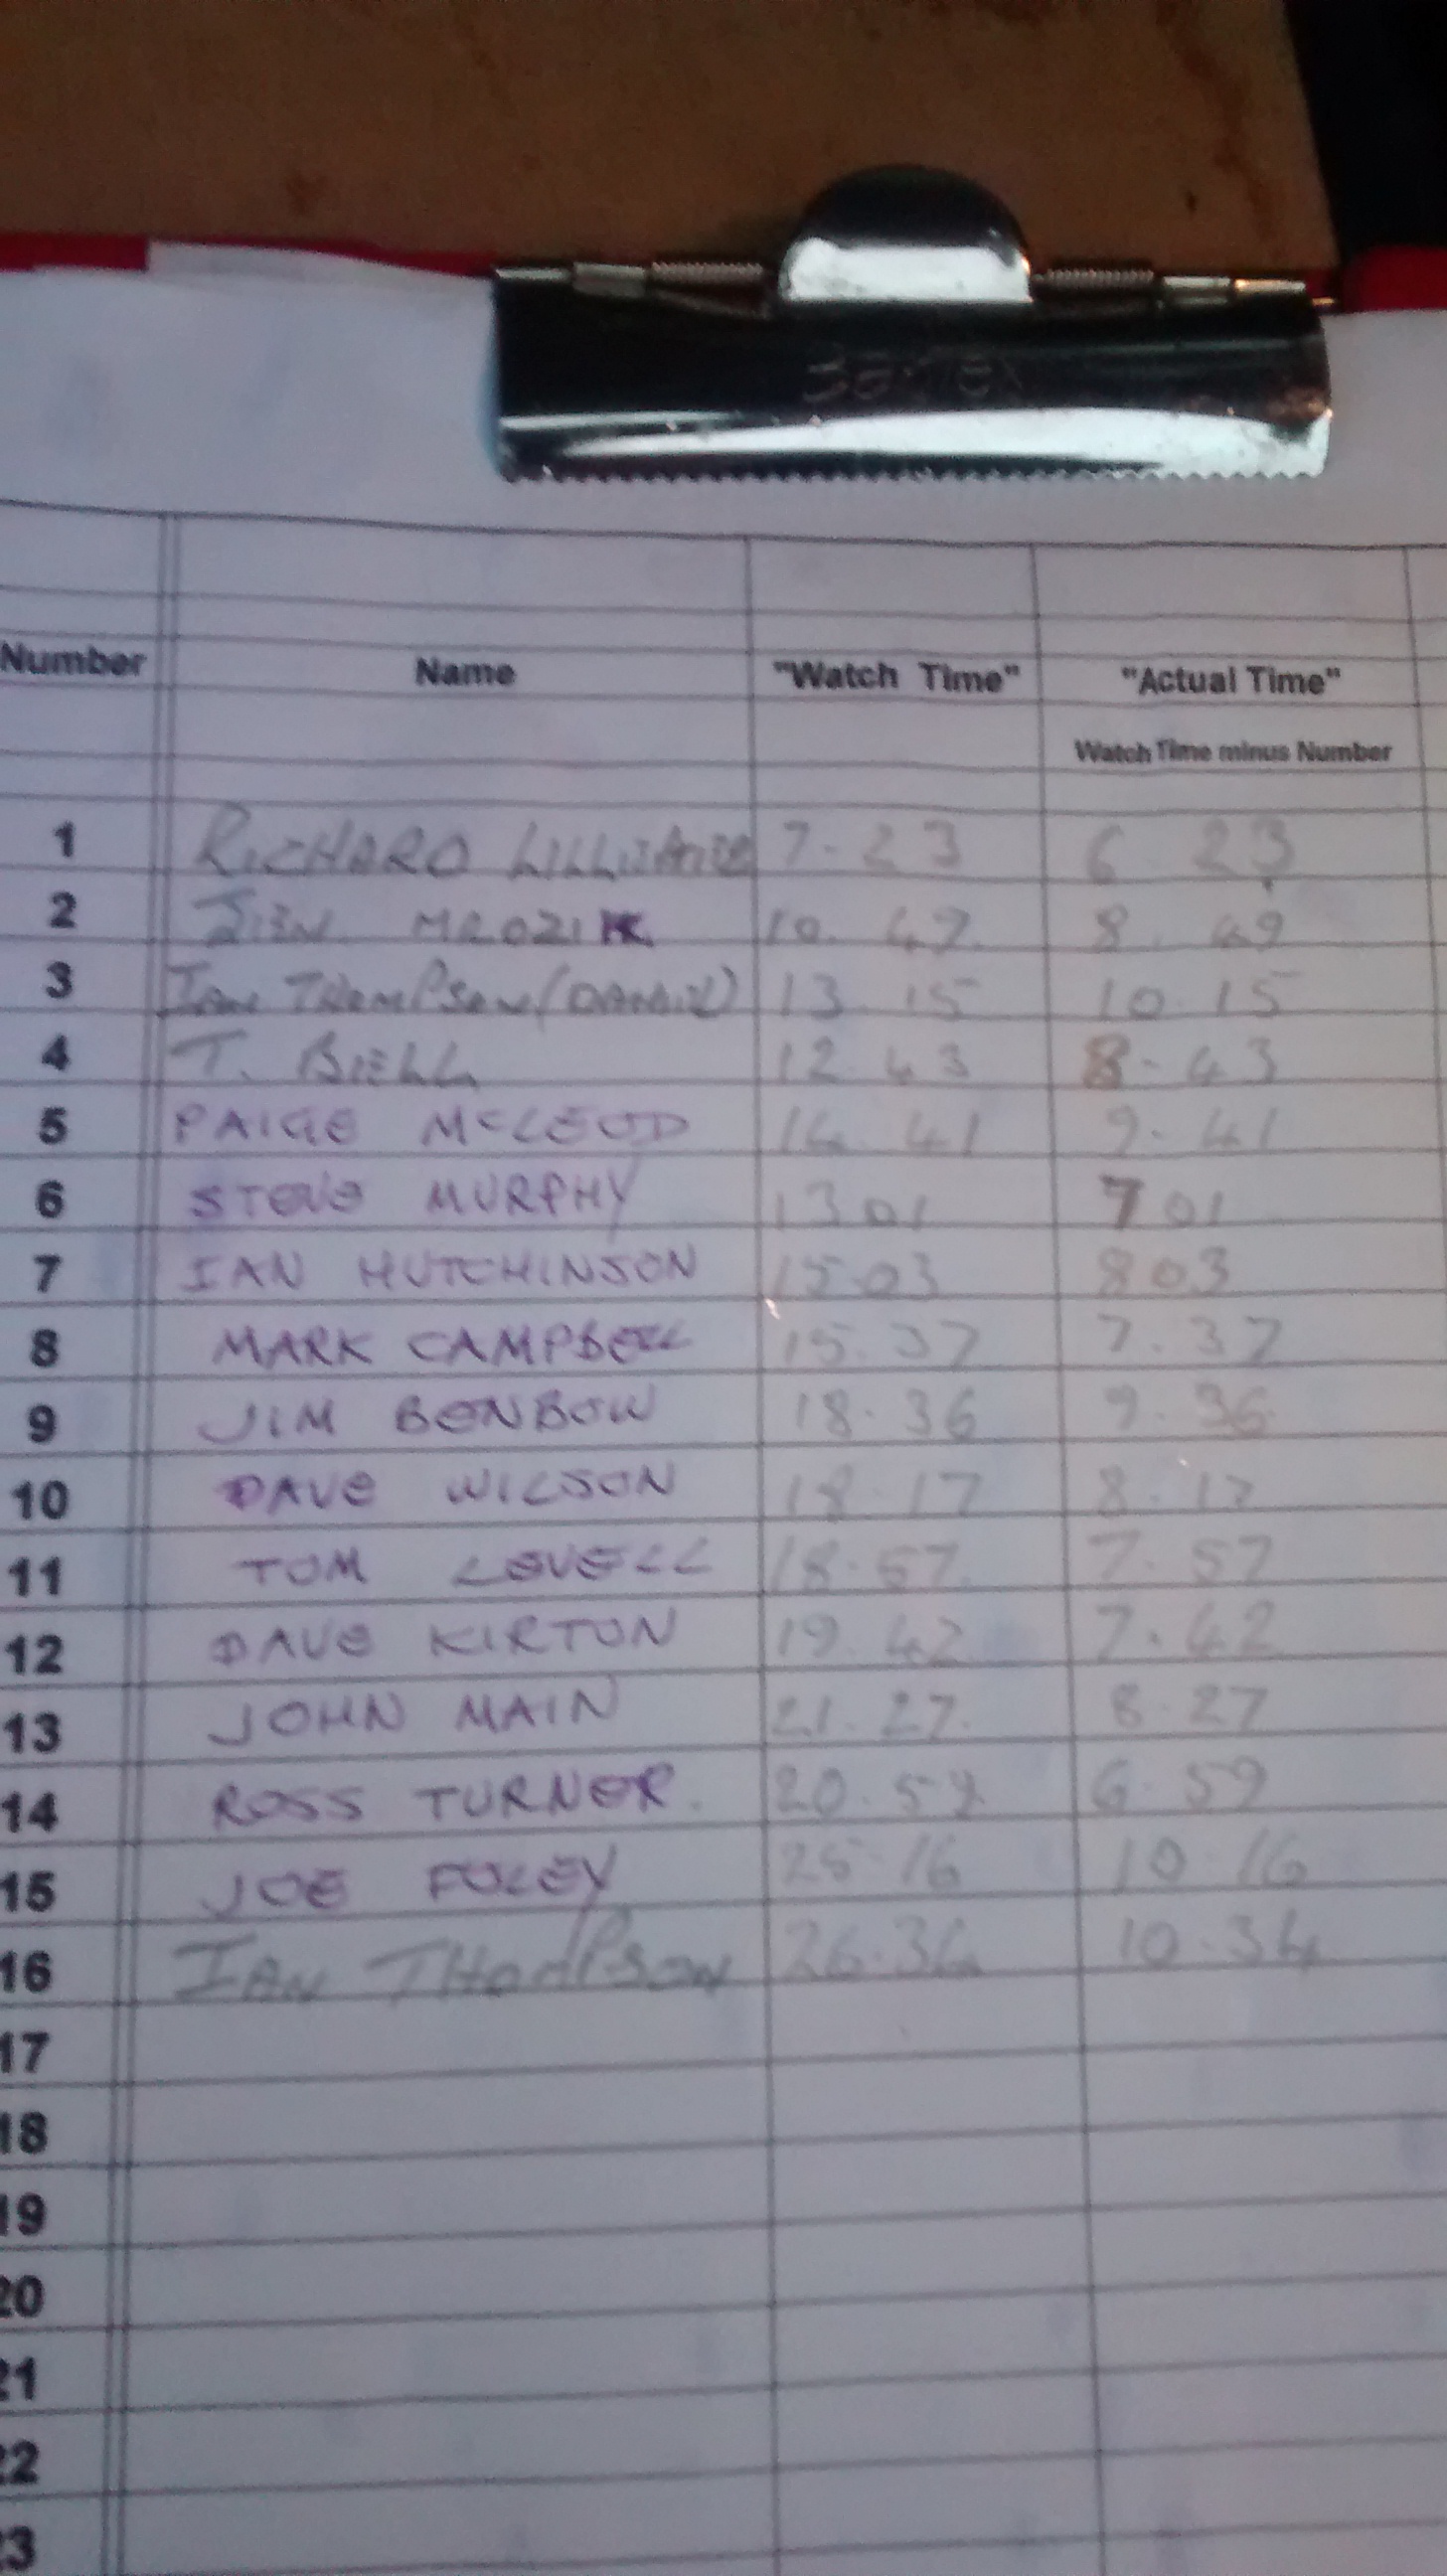 Number Name "Watch Time" "Actual Time"
Watch Time minus Number
1 RICHARD 7.23 6 23
2 MROZIK 10. 47. 8. 49
3 IAN THOMPSON 13 15 10.15
4 T. BIELL 12.43 8.43
5 PAIGE McLEOD 14.41 9.41
6 STEVE MURPHY 13 01 7 01
7 IAN HUTCHINSON 15 03 8 03
8 MARK CAMPBELL 15.37 7.37
9 JIM BENBOW 18.36 9.36
10 DAVE WILSON 18.17 8.17
11 TOM LEVELL 18.57. 7.57
12 DAVE KIRTON 19.42 7.42
13 JOHN MAIN 21.27. 8.27
14 ROSS TURNER. 20.59 6.59
15 JOE FOLEY 25.16 10 16
16 IAN THOMPSON 26.34 10.34
17
18
19
20
21
22
23